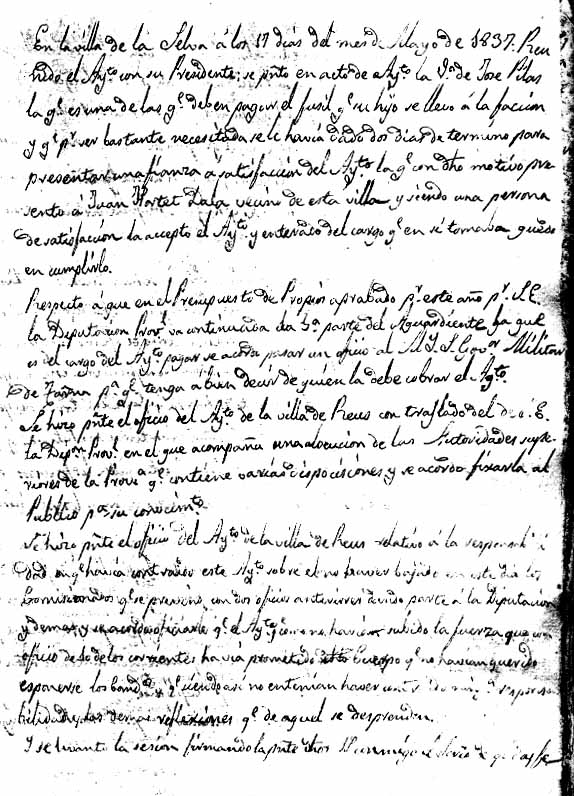 En la villa de la Selva á los 17 dias del mes de Mayo de 1837. Reu
nido el Ayto con su Presidente; se pnto en acto de Ayto la Va de Jose Plas
la qe es una de las qe deben pagar el fusil qe su hijo se llevo á la faccion
y qe pr ser bastante necesitada se le havia dado dos dias de termino para
presentar una fianza á satisfaccion del Ayto la qe con dho motivo pre
sento á Juan Hortet Dala vecino de esta villa y siendo una persona
de satisfaccion la accepto el Ayto y enterado del cargo qe en si tomaba quedo
en cumplirlo.
Respecto á que en el Presupuesto de Propios aprobado pr este año pr S. E.
la Diputacion Provl va continuada la 3a parte del Aguardiente, la que
es del cargo del Ayto pagar se acordo pasar un oficio al M. Y. S. Govor Militar
de Tarrna pa qe tenga á bien decir de quien la debe cobrar el Ayto.
Se hizo pnte el oficio del Ayto de la villa de Reus con traslado del de S. E.
la Dipon Provl en el que acompaña una alocucion de las Autoridades supe-
riores de la Prova qe contiene varias disposiciones y se acordo fixarla al
Publico pa su conocimto
Se hizo pnte el oficio del Ayto de la villa de Reus relativo á la responsabili
dad en qe havia contraido este Ayto sobre el no haver bajado en este dia los
Comisionados qe se previno con dos oficios anteriores dando parte á la Diputacion
y demas y se acordo oficiarle qe el Ayto qe como no havian subido la fuerza que con
oficio de de los corrientes havia prometido dho Cuerpo qe no havian querido
esponerse los qe siendo asi no entenian haver responsa
bilidad y las demas reflexiones qe de aquel se desprenden.
Y se levanto la sesion firmandola pnte dhos S. conmigo el Secrio de qe doy fe